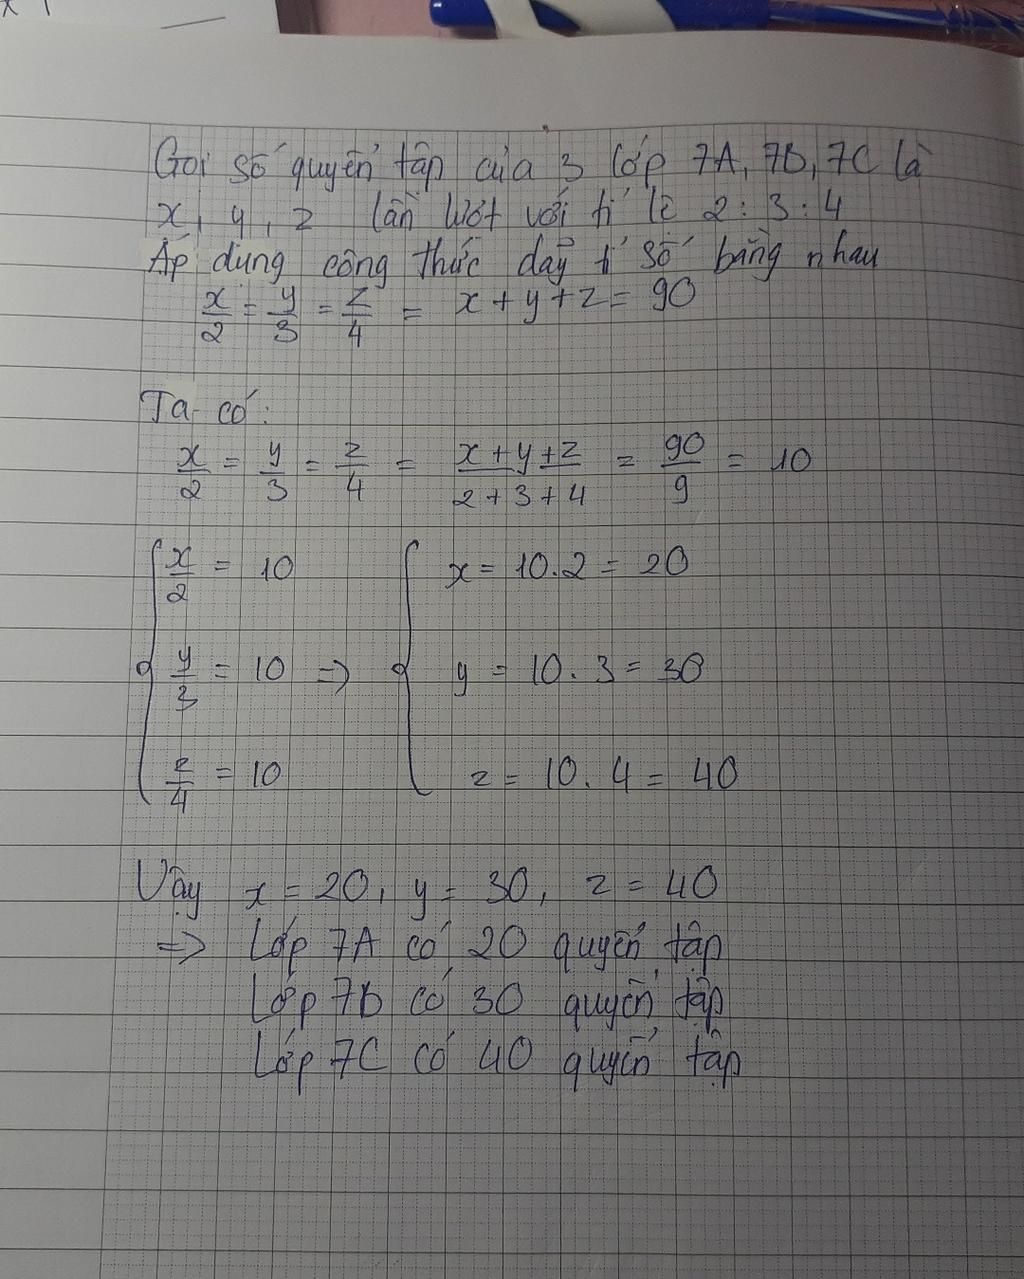 Gọi số quyển tập của 3 lớp 7A, 7B, 7C là
x, y, z lần lượt với tỉ lệ 2 : 3 : 4
Áp dụng công thức dãy tỉ số bằng nhau
x/2 = y/3 = z/4 = x + y + z = 90
Ta có:
x/2 = y/3 = z/4 = (x + y + z)/(2 + 3 + 4) = 90/9 = 10
{ x/2 = 10 { x = 10.2 = 20
y/3 = 10 => y = 10. 3 = 30
z/4 = 10 z = 10. 4 = 40
Vậy x = 20, y = 30, z = 40
=> Lớp 7A có 20 quyển tập
Lớp 7B có 30 quyển tập
Lớp 7C có 40 quyển tập